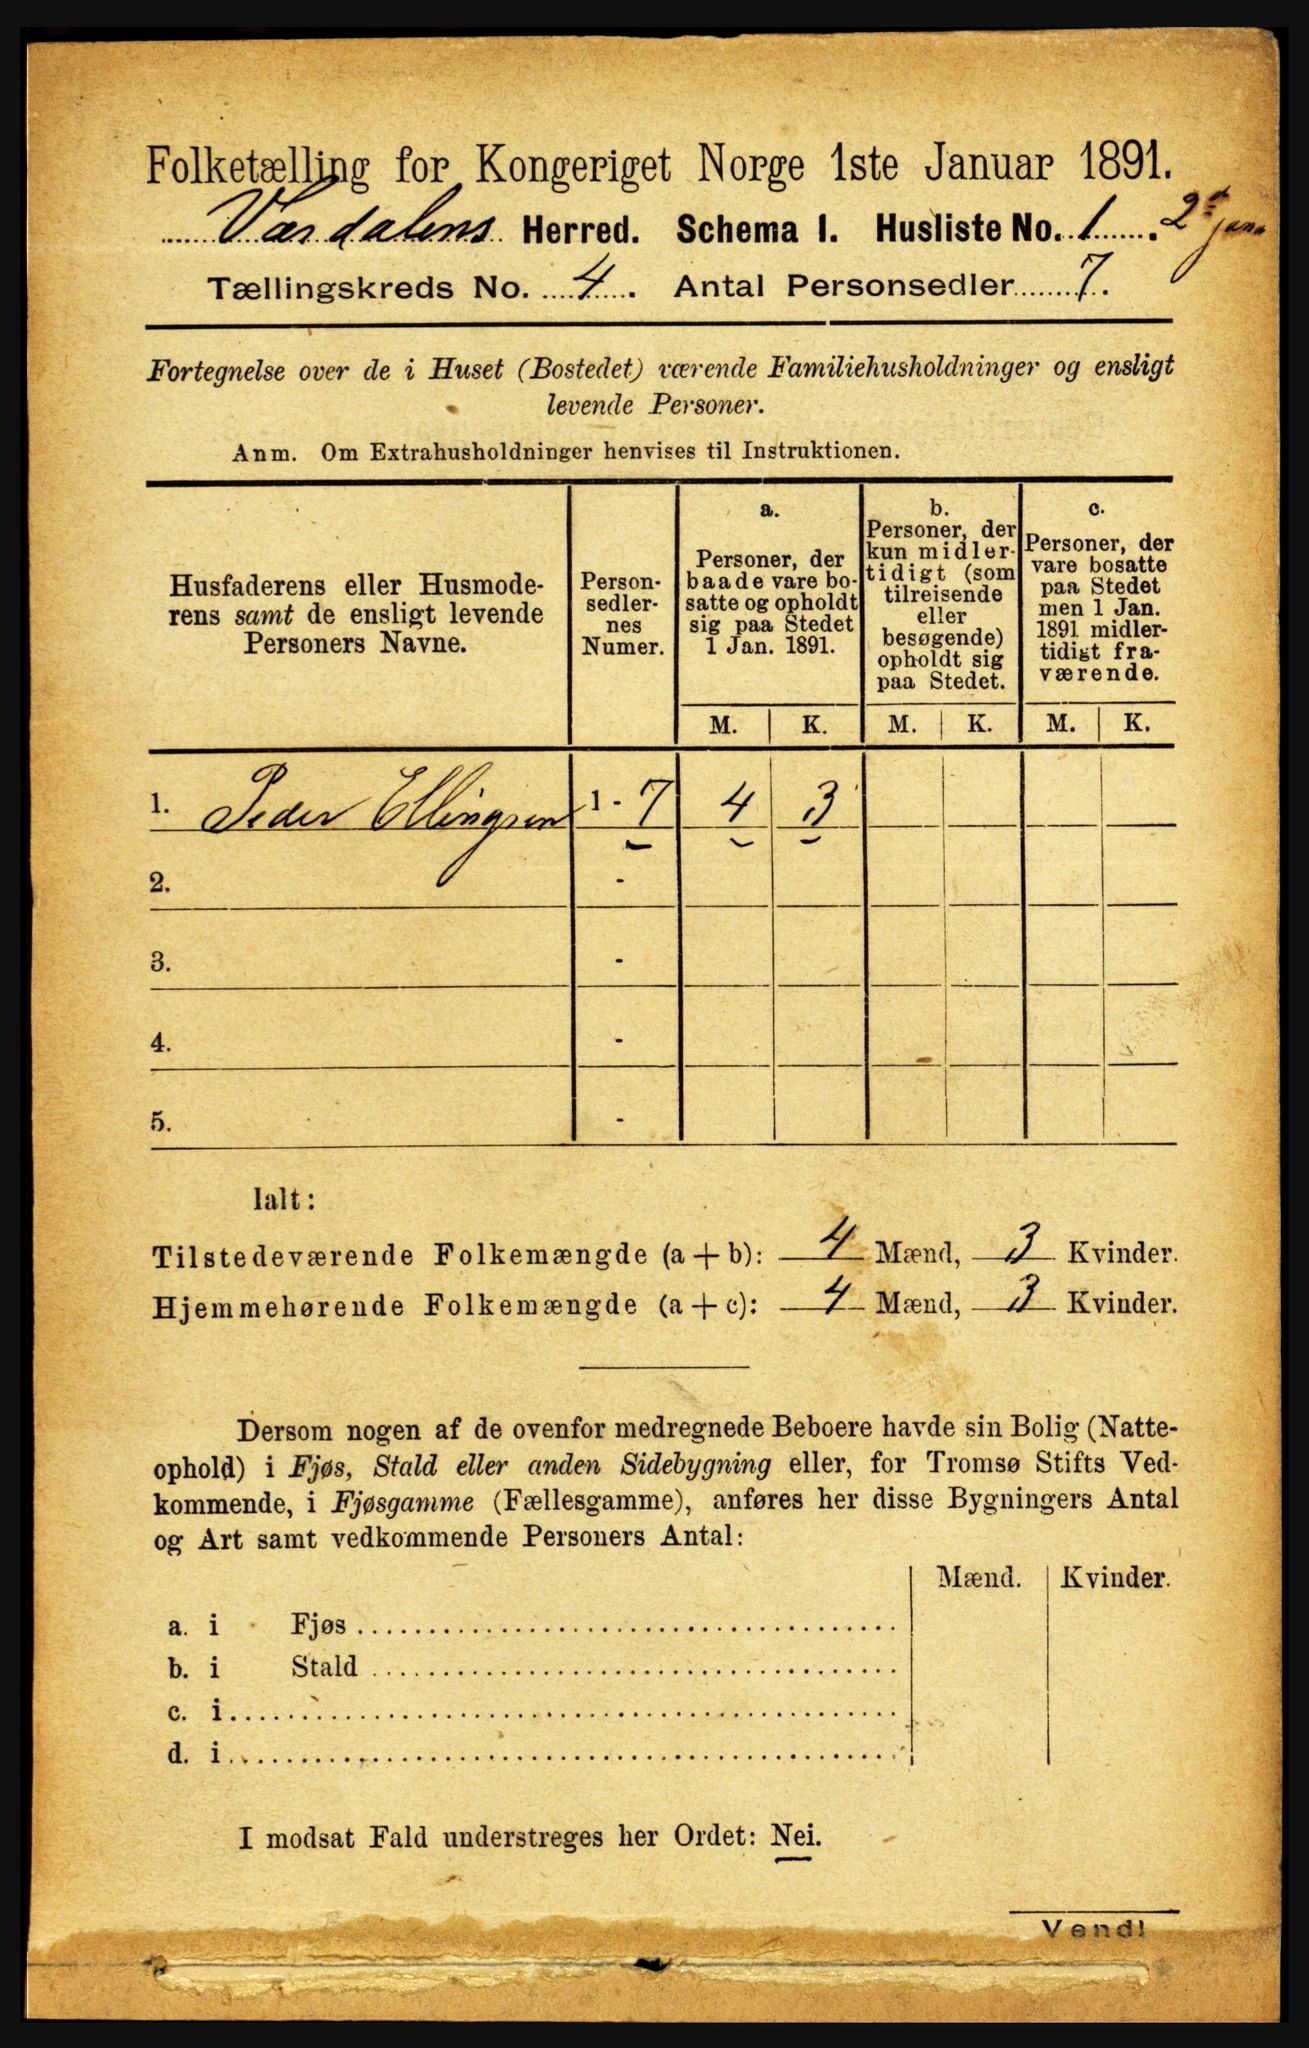 Folketælling for Kongeriget Norge 1ste Januar 1891.
Værdalens Herred. Schema I. Husliste No. 1. 2d janu
Tællingskreds No. 4. Antal Personsedler 7.
Fortegnelse over de i Huset (Bostedet) værende Familiehusholdninger og ensligt
levende Personer.
Anm. Om Extrahusholdninger henvises til Instruktionen.
Husfaderens eller Husmode-
rens samt de ensligt levende
Personers Navne.
Person-
sedler-
nes
Numer.
a.
Personer, der
baade vare bo-
satte og opholdt
sig paa Stedet
1 Jan. 1891.
b.
Personer, der
kun midler-
tidigt (som
tilreisende
eller
besøgende)
opholdt sig
paa Stedet.
c.
Personer, der
vare bosatte
paa Stedet
men 1 Jan.
1891 midler-
tidigt fra-
værende.
M. K. M. K. M. K.
1. Peder Ellingsen 1 - 7 4 3
2. -
3. -
4. -
5. -
Ialt:
Tilstedeværende Folkemængde (a + b): 4 Mænd, 3 Kvinder.
Hjemmehørende Folkemængde (a + c): 4 Mænd, 3 Kvinder.
Dersom nogen af de ovenfor medregnede Beboere havde sin Bolig (Natte-
ophold) i Fjøs, Stald eller anden Sidebygning eller, for Tromsø Stifts Ved-
kommende, i Fjøsgamme (Fællesgamme), anføres her disse Bygningers Antal
og Art samt vedkommende Personers Antal:
Mænd. Kvinder.
a. i Fjøs
b. i Stald
c. i
d. i
I modsat Fald understreges her Ordet: Nei.
Vend!